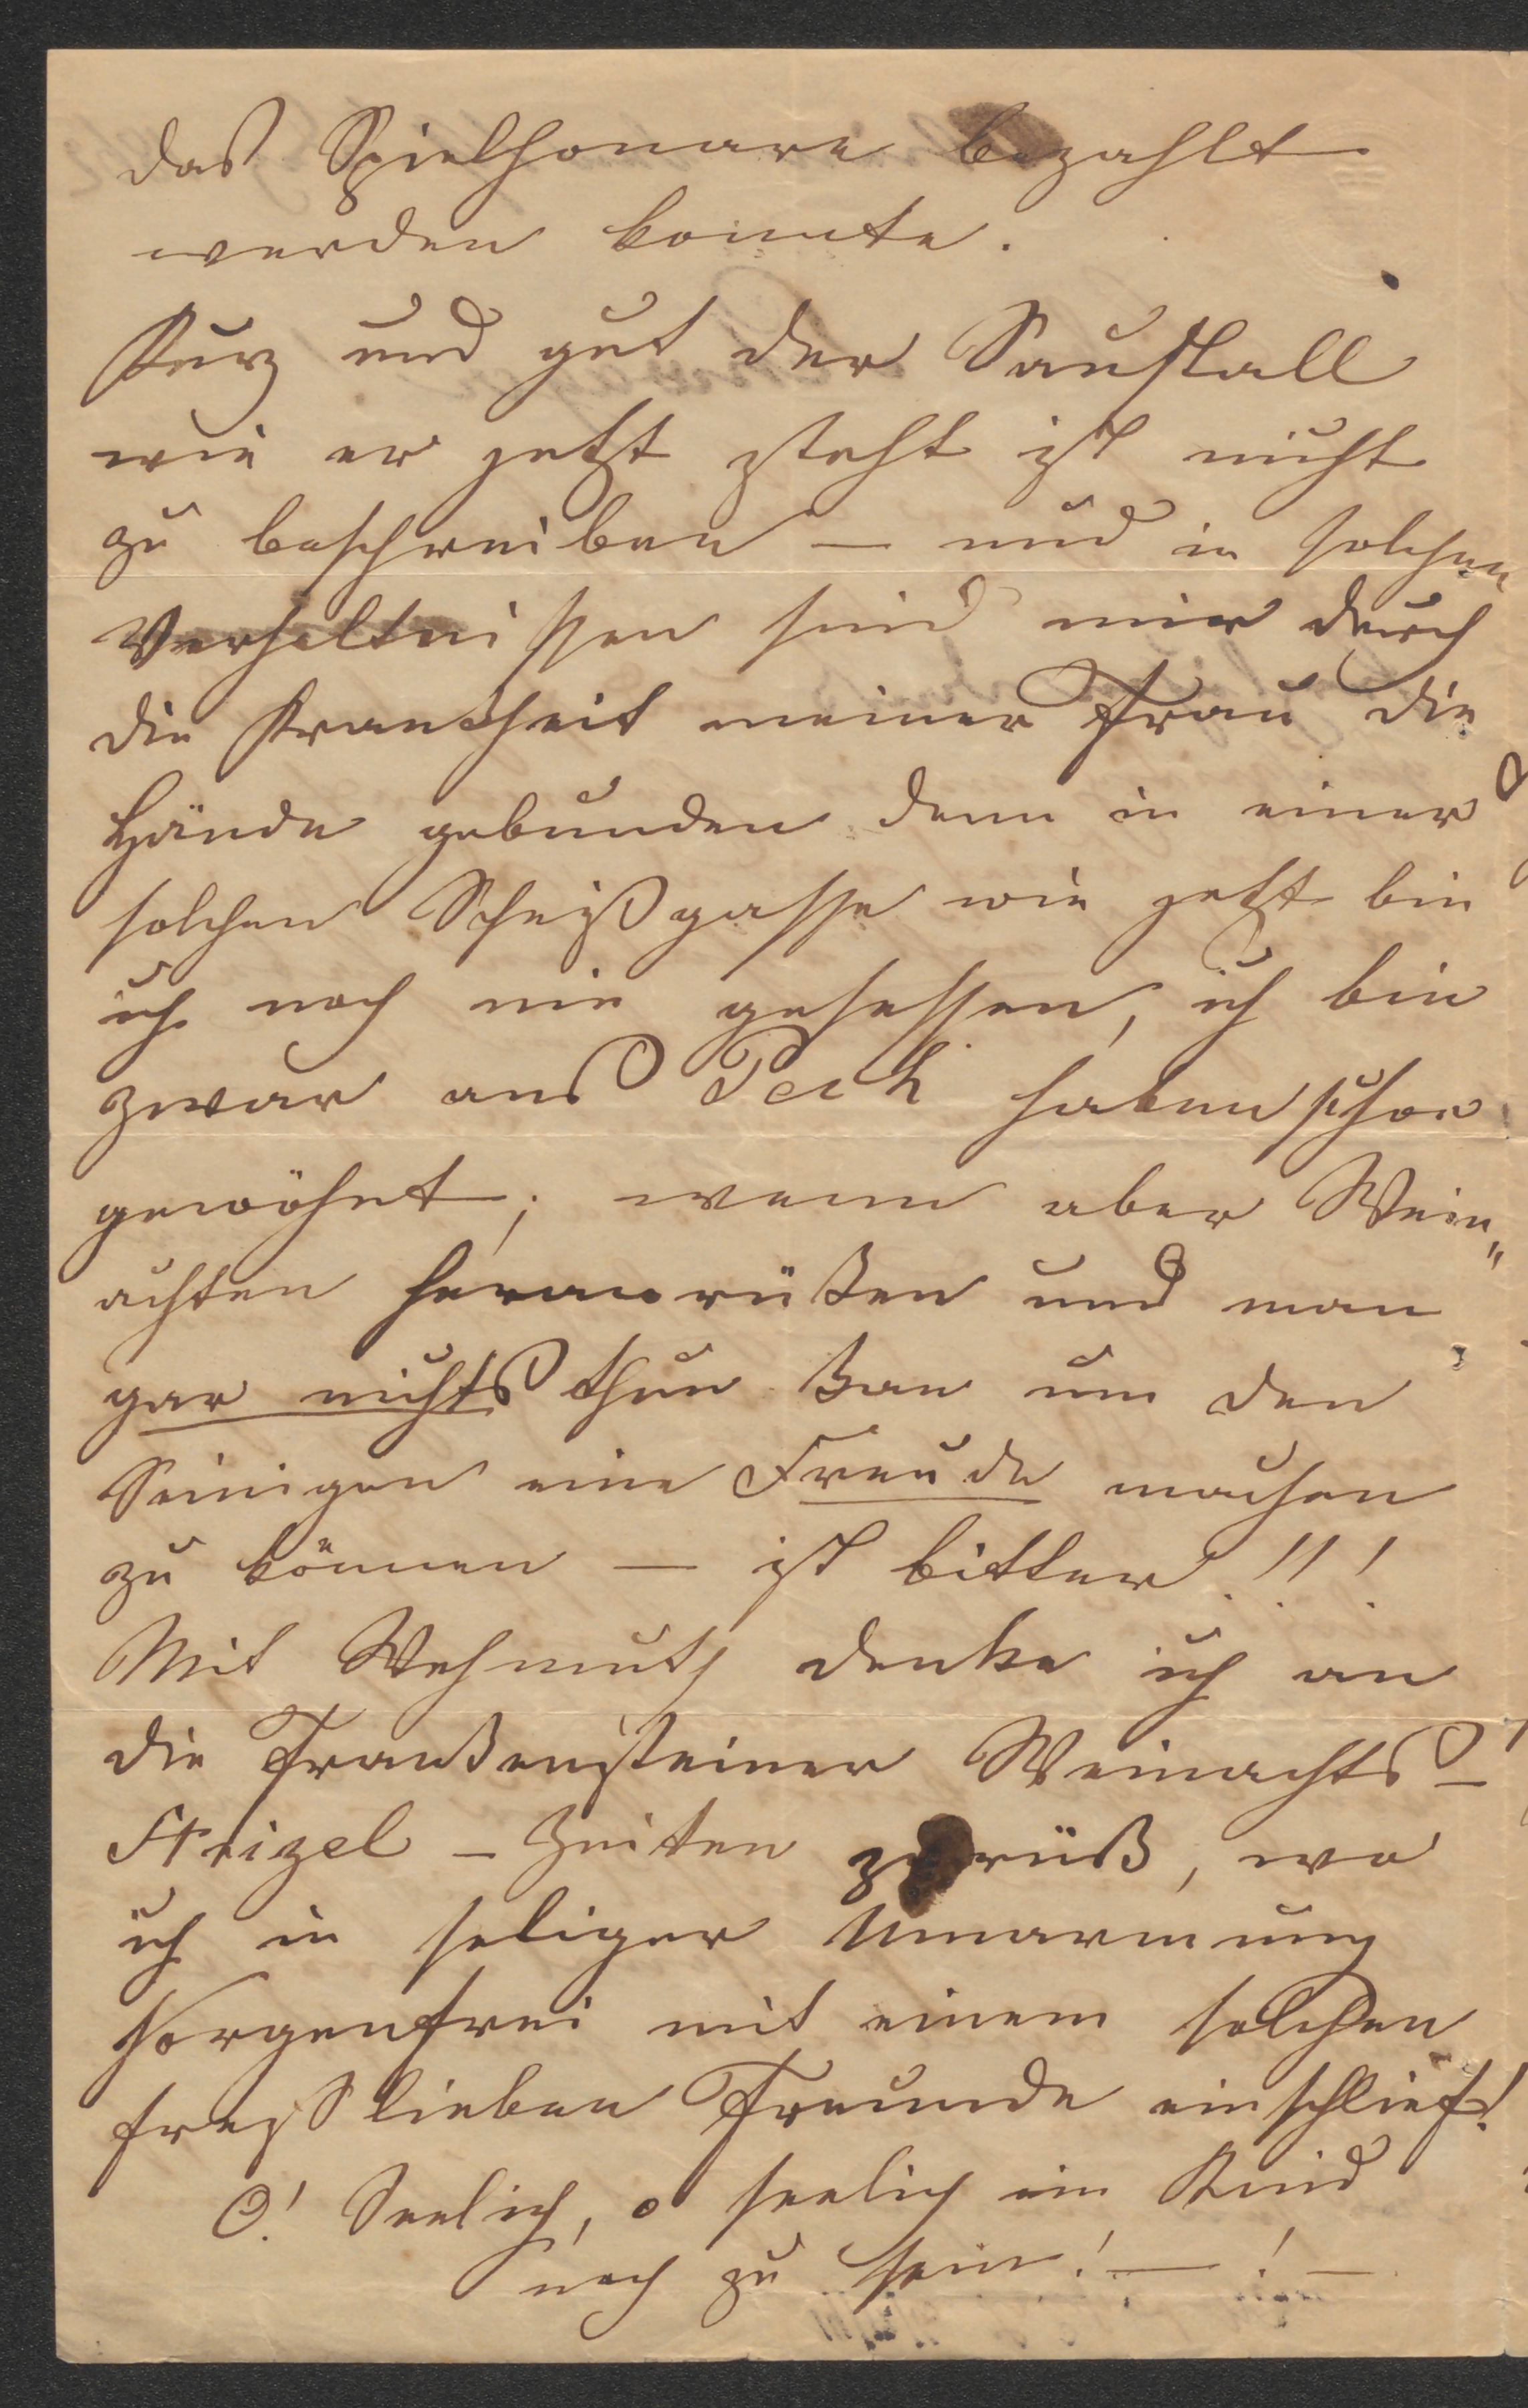 das Spielhonare bezahlt
werden konnte.
Kurz und gut der Saustall
wie er jetzt steht ist nicht
zu beschreiben – und in solchen
Verhältnissen sind mir durch
die Krankheit meiner Frau die
Hände gebunden denn in einer
solchen Scheißgasse wie jetzt bin
ich noch nie gesessen, ich bin
zwar ans Pech haben schon
gewöhnt; wenn aber Wein„
achten heranrücken und man
gar nichts thun kan um den
Seinigen eine Freude machen
zu können — ist bitter!!!
Mit Wehmuth denke ich an
die Frankensteiner Weinachts–
Strizel – Zeiten zurück, wo
ich in seliger Umarmung
sorgenfrei mit einem solchen
freß lieben Freunde einschlief!
O! Seelich, o seelig ein Kind
noch zu sein! — ! —